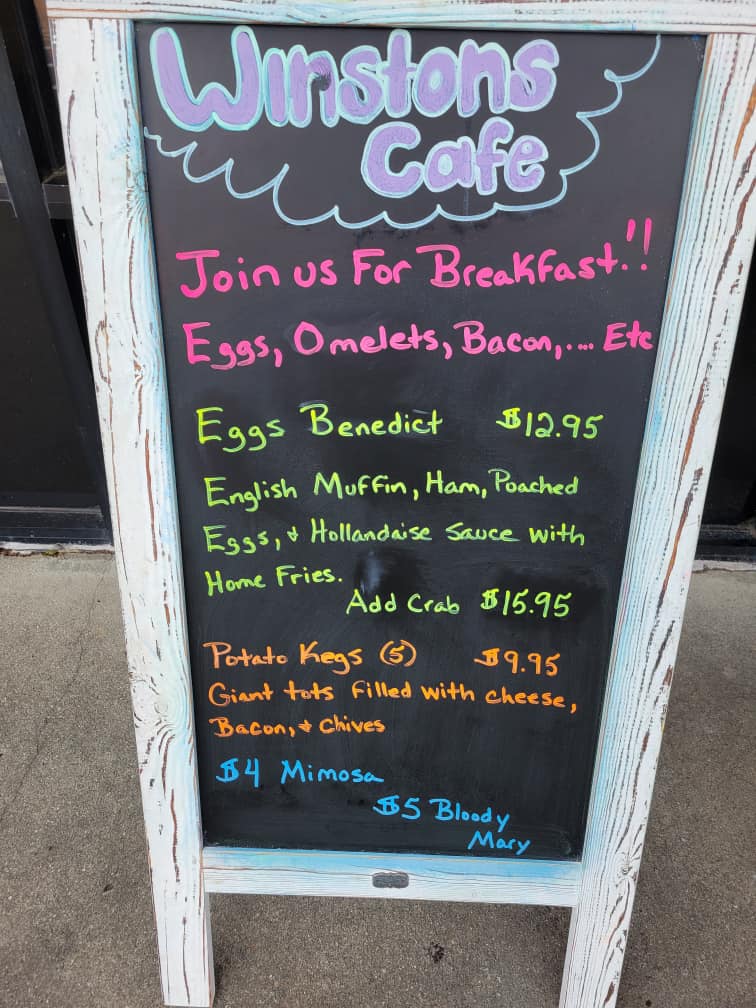 Winstons
Cafe
Join us For Breakfast.!!
Eggs, Omelets, Bacon,.... Etc
Eggs Benedict $12.95
English Muffin, Ham, Poached
Eggs, & Hollandaise Sauce with
Home Fries.
Add Crab $15.95
Potato Kegs (5) $9.95
Giant tots filled with cheese,
Bacon, & Chives
$4 Mimosa
$5 Bloody
Mary